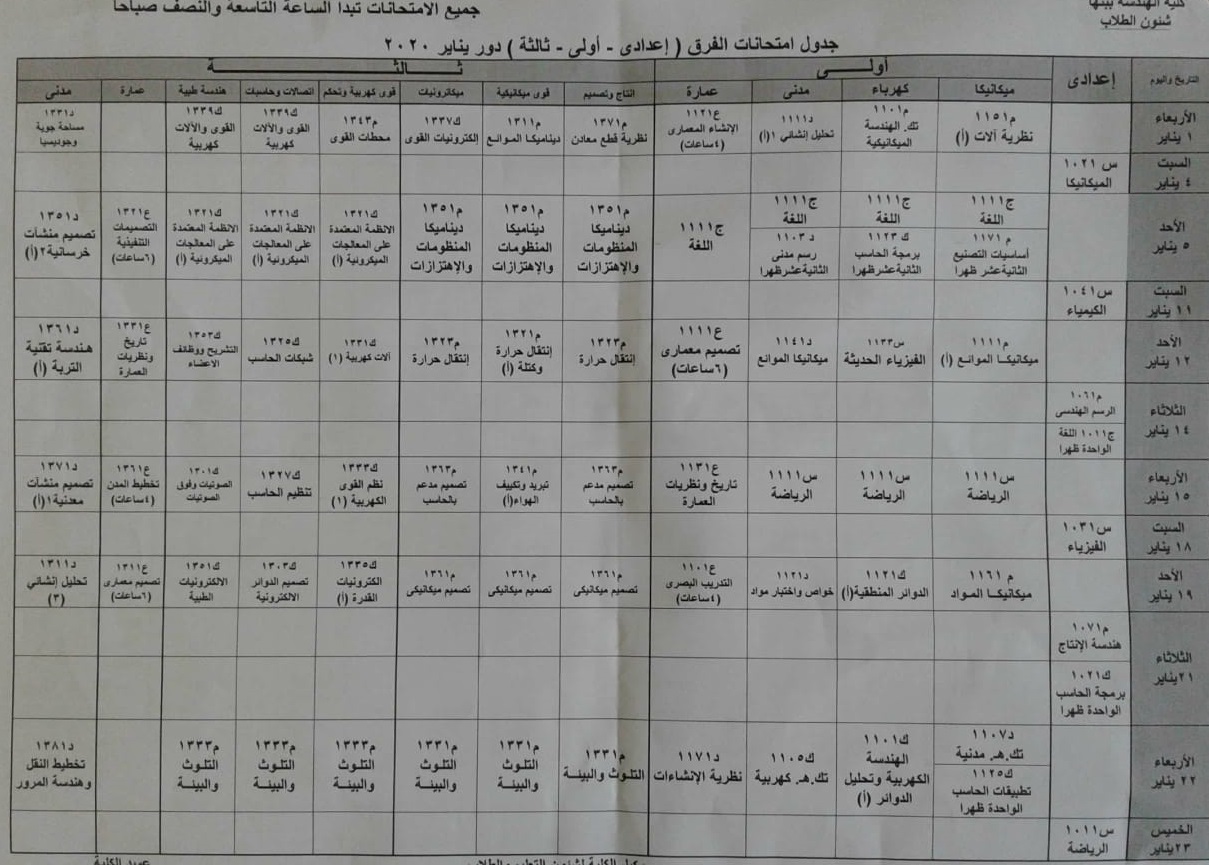 كلية الهندسة ببنها
شئون الطلاب
جميع الامتحانات تبدأ الساعة التاسعة والنصف صباحا
جدول امتحانات الفرق ( إعدادى - أولى - ثالثة ) دور يناير ٢٠٢٠
التاريخ واليوم إعدادى أولى ثالثة
ميكانيكا كهرباء مدنى عمارة انتاج وتصميم قوى ميكانيكية ميكاترونيات قوى كهربية وتحكم اتصالات وحاسبات هندسة طبية عمارة مدنى
الأربعاء م١١٥١ م١١٠١ د١١١١ ع١١٢١ م١٣٧١ م١٣١١ ك١٣٣٧ م١٣٤٣ ك١٣٣٩ ك١٣٣٩ د١٣٣١
١ يناير نظرية ألات (أ) تك. الهندسة تحليل إنشائي ١(أ) الإنشاء المعمارى نظرية قطع معادن ديناميكا الموائع إلكترونيات القوى محطات القوى القوى والآلات القوى والآلات مساحة جوية
الميكانيكية (٤ساعات) كهربية كهربية وجوديسيا
السبت س ١٠٢١
٤ يناير الميكانيكا
الأحد ج١١١١ ج١١١١ ج١١١١ ج١١١١ م١٣٥١ م١٣٥١ م١٣٥١ ك١٣٢١ ك١٣٢١ ك١٣٢١ ع١٣٢١ د١٣٥١
٥ يناير اللغة اللغة اللغة اللغة ديناميكا ديناميكا ديناميكا الانظمة المعتمدة الانظمة المعتمدة الانظمة المعتمدة التصميمات تصميم منشآت
م ١١٧١ ك ١١٢٣ د ١١٠٣ المنظومات المنظومات المنظومات على المعالجات على المعالجات على المعالجات التنفيذية خرسانية٢(أ)
أساسيات التصنيع برمجة الحاسب رسم مدنى والإهتزازات والإهتزازات والإهتزازات الميكرونية (أ) الميكرونية (أ) الميكرونية (أ) (٦ساعات)
الثانيةعشر ظهرا الثانيةعشرظهرا الثانيةعشرظهرا
السبت س١٠٤١
١١ يناير الكيمياء
الأحد م١١١١ س١١٣٣ د١١٤١ ع١١١١ م١٣٢٣ م١٣٢١ م١٣٢٣ ك١٣٣١ ك١٣٢٥ ك١٣٥٣ ع١٣٣١ د١٣٦١
١٢ يناير ميكانيكا الموائع (أ) الفيزياء الحديثة ميكانيكا الموائع تصميم معمارى إنتقال حرارة إنتقال حرارة إنتقال حرارة ألات كهربية (١) شبكات الحاسب التشريح ووظائف تاريخ هندسة تقنية
(٦ساعات) وكتلة (أ) الاعضاء ونظريات التربة (أ)
العمارة
الثلاثاء م١٠٦١
١٤ يناير الرسم الهندسى
ج١٠١١ اللغة
الواحدة ظهرا
الأربعاء س١١١١ س١١١١ س١١١١ ع١١٣١ م١٣٦٣ م١٣٤١ م١٣٦٣ ك١٣٣٣ ك١٣٢٧ ك١٣٠١ ع١٣٦١ د١٣٧١
١٥ يناير الرياضة الرياضة الرياضة تاريخ ونظريات تصميم مدعم تبريد وتكييف تصميم مدعم نظم القوى تنظيم الحاسب الصوتيات وفوق تخطيط المدن تصميم منشآت
العمارة بالحاسب الهواء(أ) بالحاسب الكهربية (١) الصوتيات (٤ساعات) معدنية١(أ)
السبت س١٠٣١
١٨ يناير الفيزياء
الأحد م ١١٦١ ك١١٢١ د١١٢١ ع١١٠١ م١٣٦١ م١٣٦١ م١٣٦١ ك١٣٣٥ ك١٣٠٣ ك١٣٥١ ع١٣١١ د١٣١١
١٩ يناير ميكانيكا المواد الدوائر المنطقية(أ) خواص واختبار مواد التدريب البصرى تصميم ميكانيكى تصميم ميكانيكى تصميم ميكانيكى الكترونيات تصميم الدوائر الالكترونيات تصميم معمارى تحليل إنشائي
(٤ساعات) القدرة (أ) الالكترونية الطبية (٦ساعات) (٣)
الثلاثاء م١٠٧١
٢١يناير هندسة الإنتاج
ك١٠٢١
برمجة الحاسب
الواحدة ظهرا
الأربعاء د١١٠٧ ك١١٠١ ك١١٠٥ د١١٧١ م١٣٣١ م١٣٣١ م١٣٣١ م١٣٣٣ م١٣٣٣ م١٣٣٣ د١٣٨١
٢٢ يناير تك.هـ. مدنية الهندسة تك.هـ. كهربية نظرية الإنشاءات التلوث والبيئة التلوث التلوث التلوث التلوث التلوث تخطيط النقل
ك١١٢٥ الكهربية وتحليل والبيئة والبيئة والبيئة والبيئة والبيئة وهندسة المرور
تطبيقات الحاسب الدوائر (أ)
الواحدة ظهرا
الخميس س١٠١١
٢٣يناير الرياضة
عميد الكلية